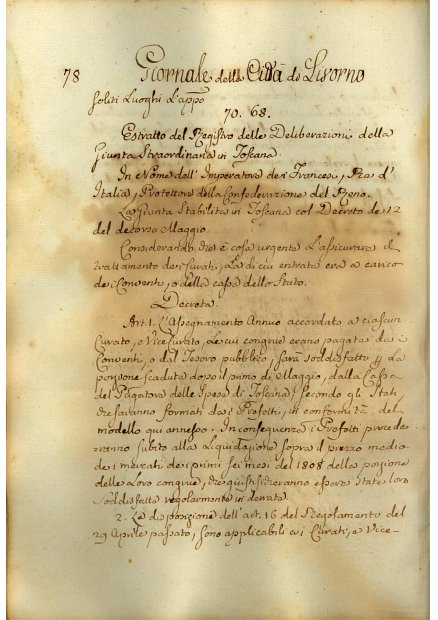 78 Giornale della Città di Livorno
soliti Luoghi L'appo
70. 68.
Estratto del Registro delle Deliberazioni della
Giunta Straordinaria in Toscana.
In Nome dell'Imperatore de i Francesi, Re d'
Italia, Protettore della Confederazione del Reno.
La Giunta Stabilita in Toscana col Decreto de 12
del decorso Maggio.
Considerando che è cosa urgente L'assicurare il
trattamento de i Curati, La di cui entrata era a carico
de i Conventi, o della cassa dello Stato.
Decreta.
Art. 1. L'Assegnamento Annuo accordato a ciascun
Curato, e ViceCurato, Le cui congrue erano pagate da i
Conventi, o dal Tesoro pubblico, sarà Soddisfatto p la
porzione scaduta dopo il primo di Maggio, dalla Cassa
del Pagatore delle Spese di Toscana, Secondo gli Stati,
che saranno formati da i Prefetti, in conformità del
modello qui annesso. In conseguenza i Prefetti procede-
ranno subito alla Liquidazione sopra il prezzo medio
de i mercati de i primi sei mesi del 1808 della porzione
delle Loro congrue, che giustificheranno essere state loro
Soddisfatta regolarmente in derrate.
2. Le disposizione dell'art. 16 del Regolamento del
29 Aprile passato, sono applicabili a i Curati, e Vice-